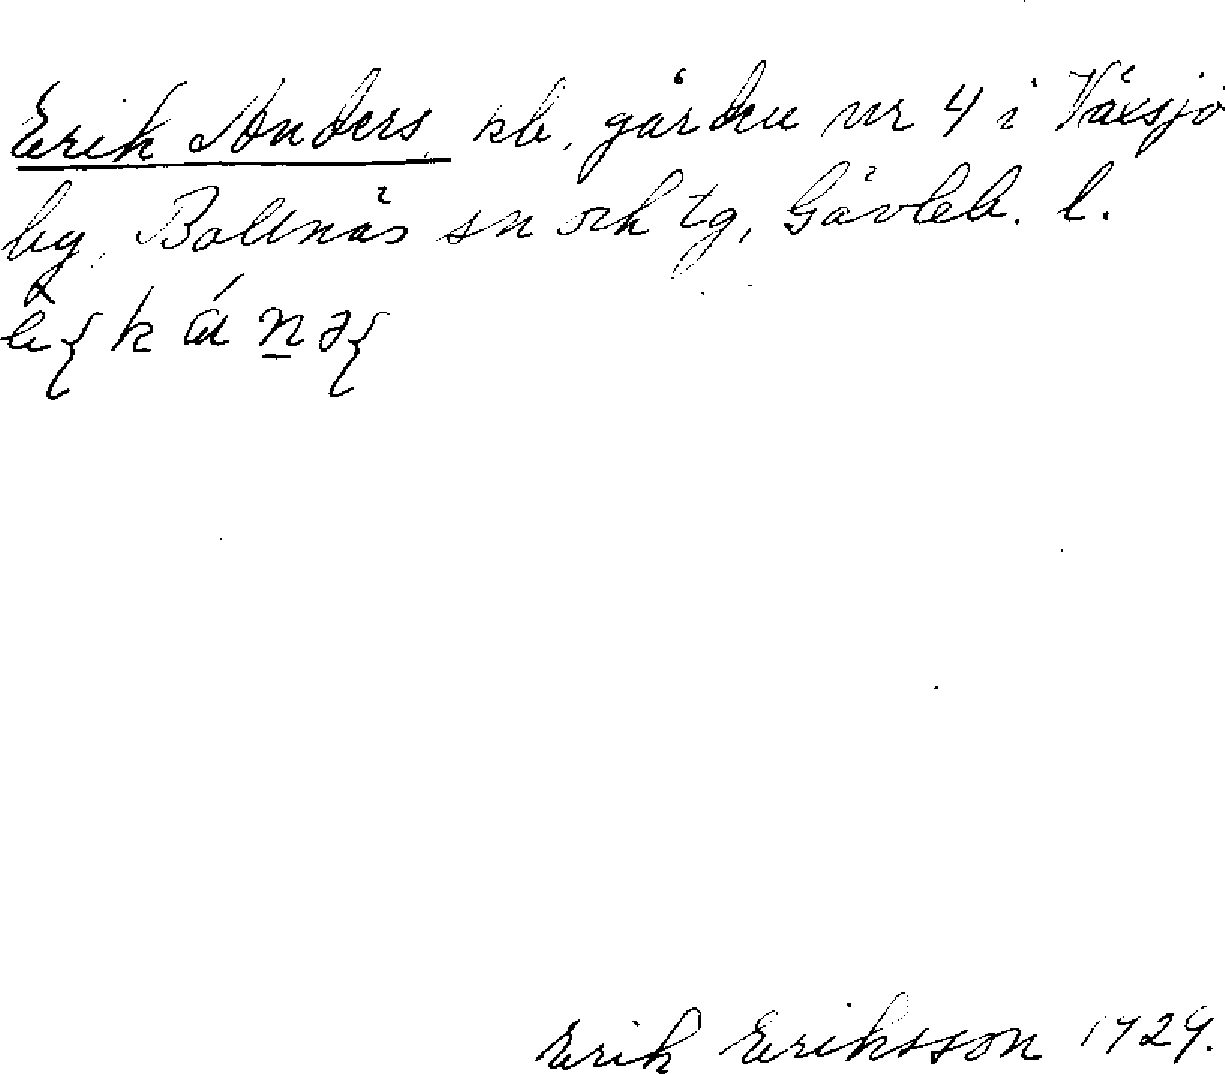 Erik Anders, kb, gården nr 4 i Växsjö
by, Bollnäs sn och tg, Gävleb. l.
Erik Eriksson 1929.